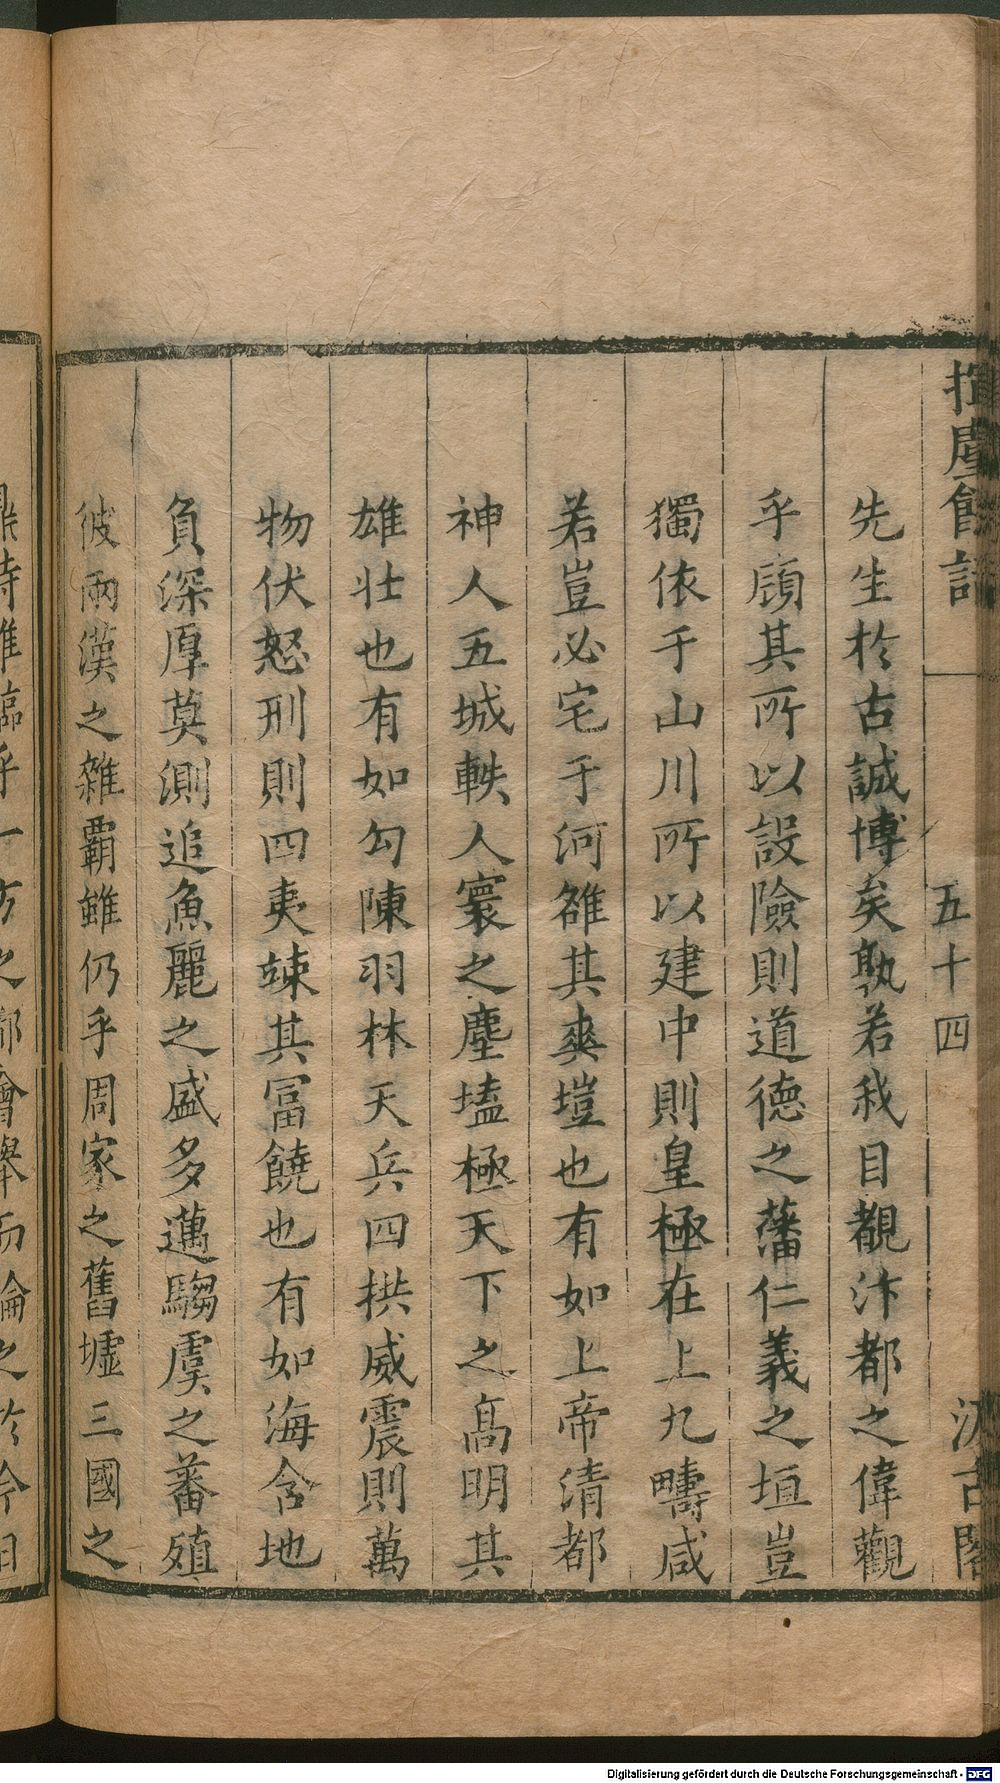 揮塵餘話
五十四
汲古閣
先生於古誠博矣孰若我目覩汴都之偉觀
乎頋其所以設險則道德之藩仁義之垣豈
獨依于山川所以建中則皇極在上九疇咸
若豈必宅于河雒其爽塏也有如上帝清都
神人五城軼人寰之塵壒極天下之高明其
雄壯也有如勾陳羽林天兵四拱威震則萬
物伏怒刑則四夷竦其冨饒也有如海含地
負深厚莫測追魚麗之盛多邁騶虞之蕃殖
彼兩漢之雜霸雖仍乎周家之舊墟三國之
方之都會舉而論之於今日
Digitalisierung gefördert durch die Deutsche Forschungsgemeinschaft - DFG